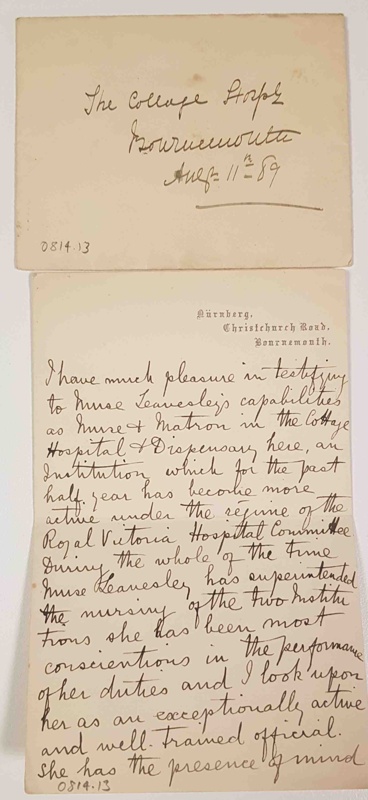 The Cottage Hospl
Bournemouth
Augst 11th 89
0814.13
Nürnberg,
Christchurch Road,
Bournemouth.
I have much pleasure in testifying
to Nurse Leavesley's capabilities
as Nurse & Matron in the Cottage
Hospital & Dispensary here, an
Institution which for the past
half year has become more
active under the régime of the
Royal Victoria Hospital Committee
During the whole of the time
Nurse Leavesley has superintended
the nursing of the two Institu
tions she has been most
conscientious in the performance
of her duties and I look upon
her as an exceptionally active
and well-trained official.
She has the presence of mind
0814.13